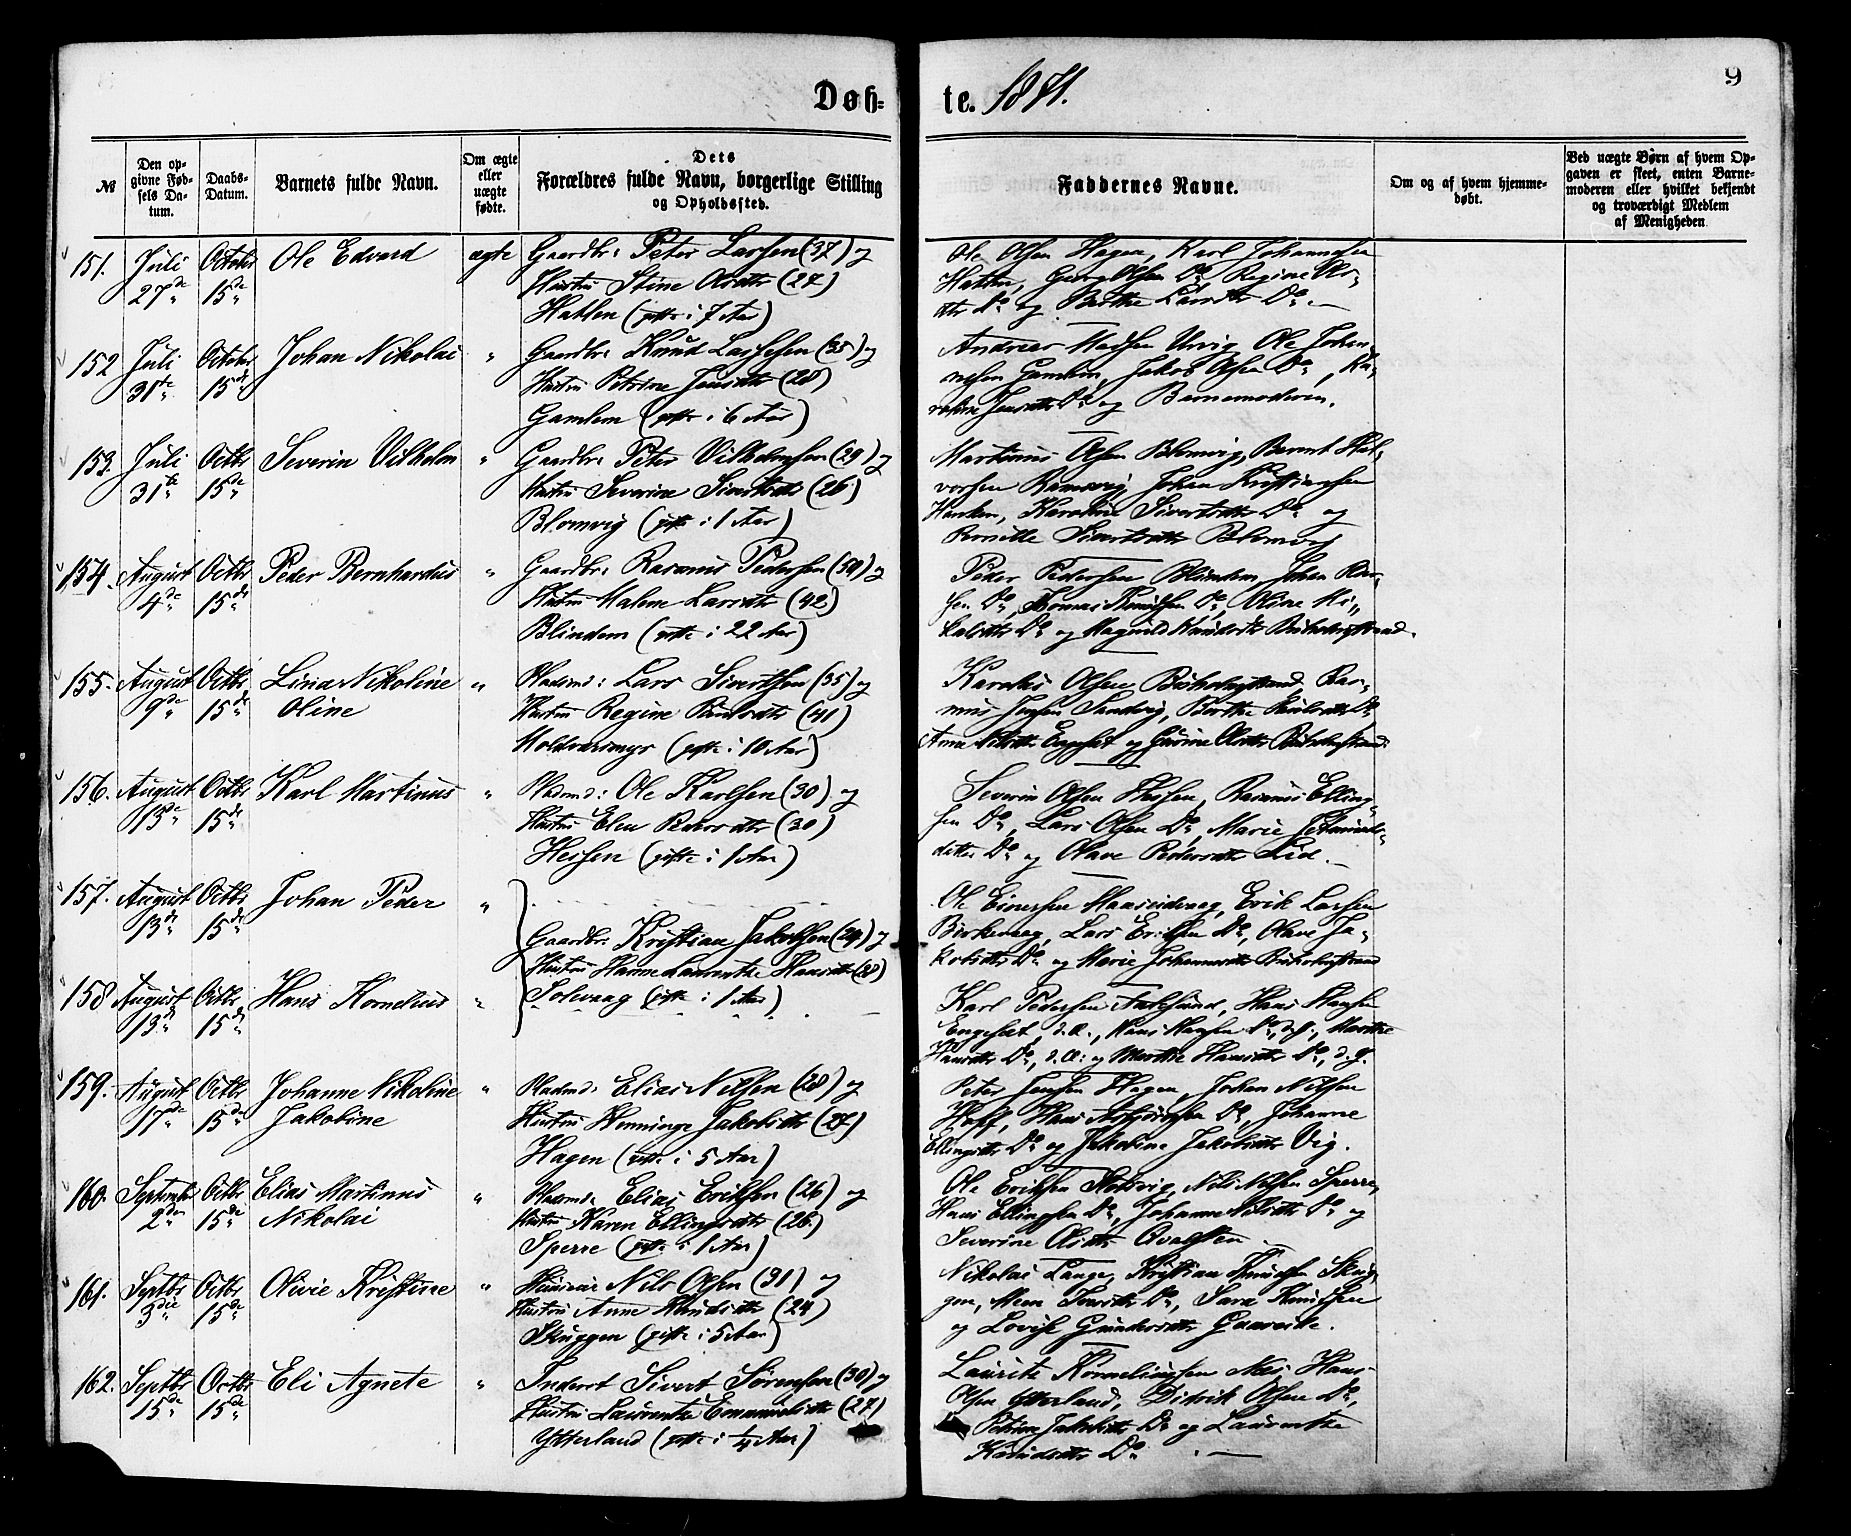 Døb-
te. 1871.
9
№
Den op-
givne Fød-
sels Da-
tum.
Daabs-
Datum.
Barnets fulde Navn.
Om ægte
eller
uægte
fødte.
Dets
Forældres fulde Navn, borgerlige Stilling
og Opholdssted.
Faddernes Navne.
Om og af hvem hjemme-
døbt.
Ved uægte Børn af hvem Op-
gaven er skeet, enten Barne-
moderen eller hvilket bekjendt
og troværdigt Medlem
af Menigheden
151. Juli 27de October 15de Ole Edvard ægte Gaardbr: Peter Larssen (37) og
Hustru Stine (27)
Hatlen (gifte i 7 Aar)
Ole Olsen Hagen, Karl Johannesen
Hatlen, Georg Olsen Do, Regine Ols-
dtr Do og Berthe Larsdtr Do.
152 Juli 31te October 15de Johan Nikolai " Gaardbr: Knud Lassesen (35) og
Hustru Petrine Jensdtr (28)
Gamlem (gifte i 6 Aar)
Andreas Madsen Urvig, Ole Johan-
nesen Gamlem, Jakob Olsen Do, Ka-
roline Jensdtr Do og Barnemoderen.
153. Juli 31te Octbr 15de Severin Vilhelm " Gaardbr: Peter Vilhelmsen (29) og
Hustru Severine Sivertsdtr (26)
Blomvig (gifte i 1 Aar)
Martinus Olsen Blomvig, Bernt Hal-
vorsen Ramsvig, Johan Kristiansen
Hanken, Karoline Sivertsdtr Do og
Pernille Sivertsdtr Blomvig
154. August 4de Octbr 15de Peder Bernhardus " Gaardbr: Rasmus Pedersen (50) og
Hustru Malene Larsdtr (42)
Blindem (gifte i 22 Aar)
Peder Pedersen Blindem, Johan Ras-
sen Do, Thomas Knudsen Do, Oline Mi-
kalsdtr Do og Magnild Knudsdtr
155. August 9de Octbr 15de Lina Nikoline " Pladsmd: Lars Sivertsen (35) og
Oline Hustru Regine Paulsdtr (41)
Moldværsmyr (gifte i 10 Aar)
Karolus Olsen, Ras-
mus Jensen Sandvig, Berthe Paulsdtr Do
Anne Nilsdtr Engeset og Gurine Olsdtr
156. August 13de Octbr 15de Karl Martinus " Pladsmd: Ole Karlsen (30) og
Hustru Elen (30)
Hessen (gifte i 1 Aar)
Severin Olsen Hessen, Rasmus Elling-
sen Do, Lars Olsen Do, Marie
datter Do og Olave Pedersdtr Lid.
157. August 13de Octbr 15de Johan Peder "
Gaardbr: Kristian Jakobsen (29) og
Hustru Hanne Laurentze Hansdtr (28)
Solevaag (gifte i 1 Aar)
Ole Einersen Maaseidvaag, Erik Larsen
Birkevaag, Lars Eriksen Do, Olave Ja-
kobsdtr Do og Marie Johannesdtr
158 August 13de Octbr 15de Hans Kornelius "
Karl Pedersen Aalesund, Hans Hansen
Engeset, d.æ., Hans Hansen Do, d.y., Marthe
Hansdtr Do, d.æ: og Marthe Hansdtr Do, d.y.
159. August 17de Octbr 15de Johanne Nikoline " Pladsmd: Elias Nilsen (28) og
Jakobine Hustru Henninge Jakobsdtr (27)
Hagen (gifte i 5 Aar)
Peter Jensen Hagen, Johan Nilsen
Hoff, Hans Asbjørnsen Do, Johanne
Ellingsdtr Do og Jakobine Jakobsdtr Vig.
160. September 2den Octbr 15de Elias Martinus " Pladsmd: Elias Eriksen (26) og
Nikolai Hustru Karen Ellingsdtr (26)
Sperre (gifte i 1 Aar)
Ole Eriksen, Nils Nilsen Sperre,
Hans Ellingsen Do, Johanne Nilsdtr Do og
Severine Olsdtr
161. Septbr 3die Octbr 15de Olivie Kristine " Nils Olsen (31) og
Hustru Anne Knudsdtr (24)
Skuggen (gifte i 5 Aar)
Nikolai Lange, Kristian Knudsen Skug-
gen, Do, Sara Knudsen
og Lovise Gundersdtr
162. Septbr 15de Octbr 15de Eli Agnete " Inderst Sivert Sørensen (30) og
Hustru Laurentze Emanuelsdtr (27)
Ytterland (gifte i 1/4 Aar)
Laurits Korneliussen Nes, Hans
Olsen Ytterland, Didrik Olsen Do,
Petrine Jakobsdtr Do og Laurentze
Knudsdtr Do